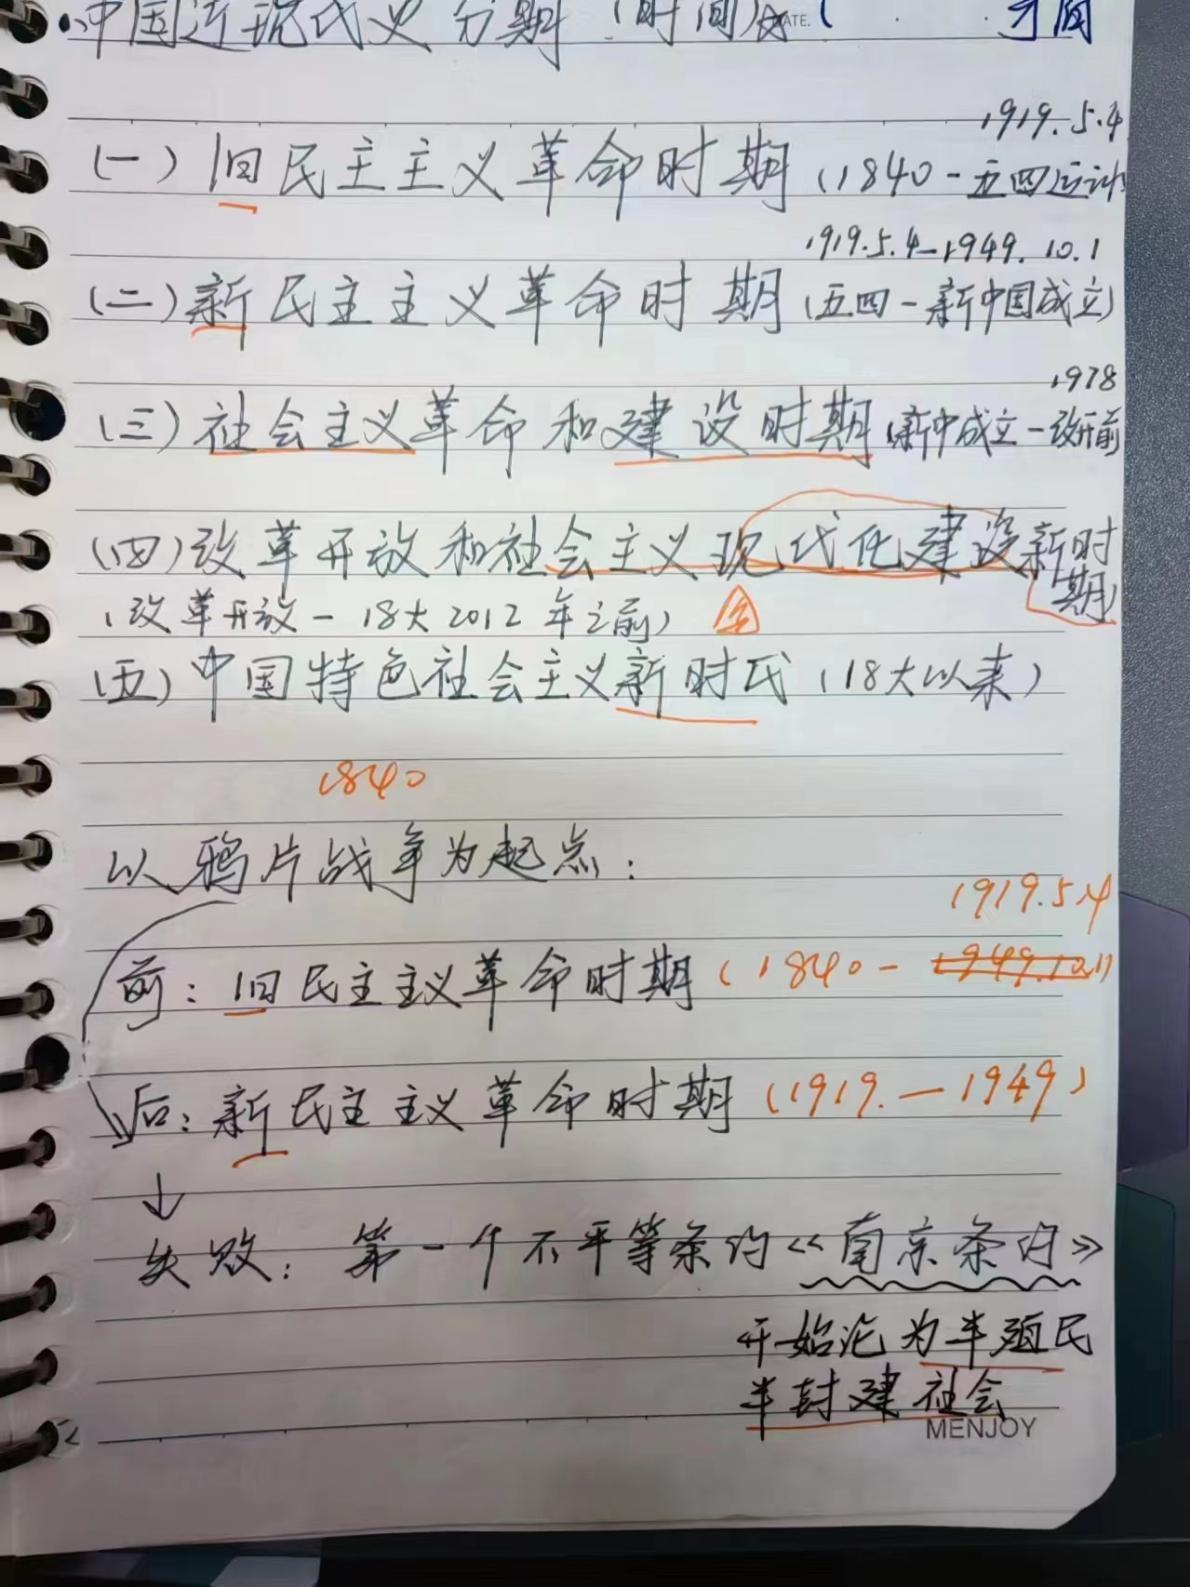 中国近现代史分期（时间）
DATE.
1919.5.4
(一) 旧民主主义革命时期 (1840-五四运动
1919.5.4-1949.10.1
(二) 新民主主义革命时期 (五四-新中国成立)
1978
(三) 社会主义革命和建设时期 (新中成立-改开前
(四) 改革开放和社会主义现代化建设新时期
(改革开放-18大2012年之前)
(五) 中国特色社会主义新时代 (18大以来)
1840
以鸦片战争为起点:
1919.5.4
前: 旧民主主义革命时期 (1840- 1949.10.1)
后: 新民主主义革命时期 (1919.-1949)
↓
失败: 第一个不平等条约《南京条约》
开始沦为半殖民
半封建社会
MENJOY